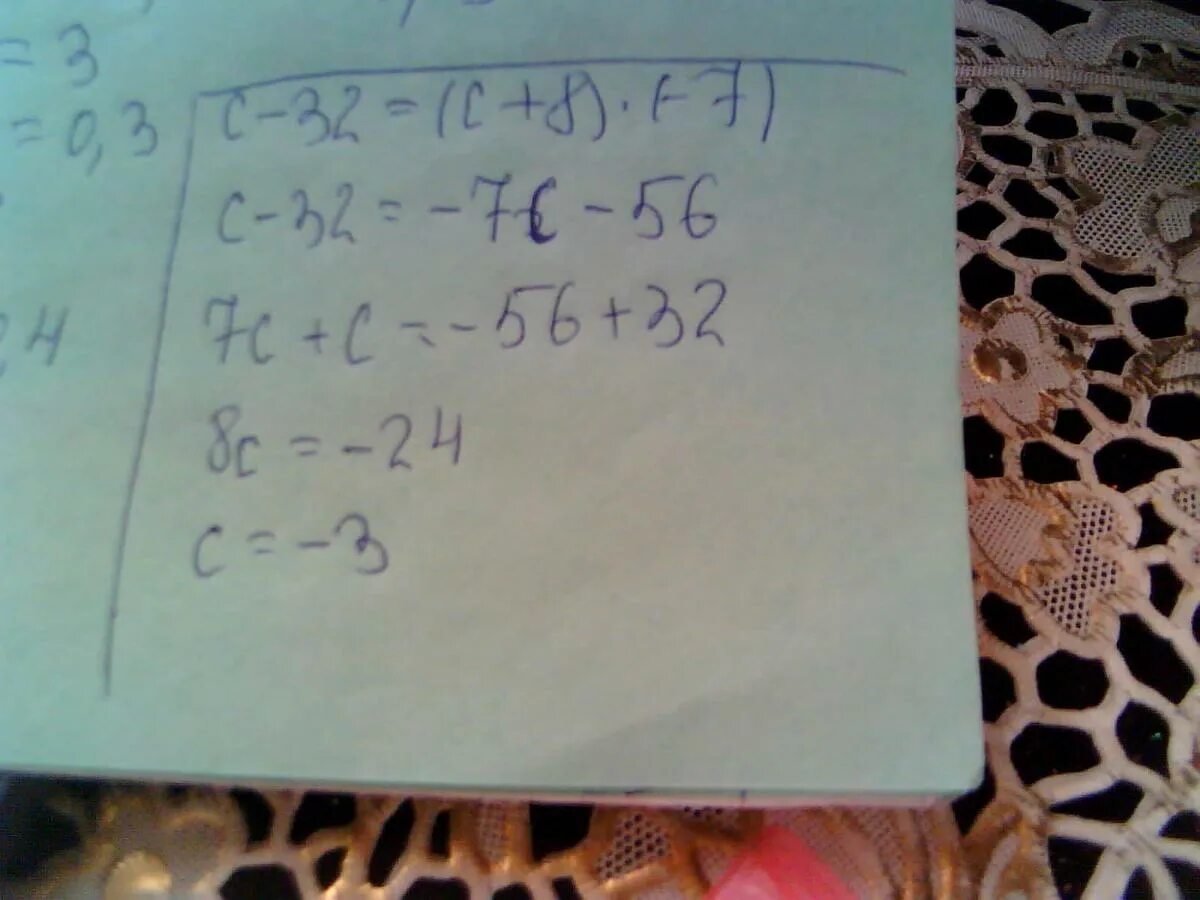 = 3
= 0,3
4
c - 32 = (c + 8) · (-7)
c - 32 = -7c - 56
7c + c = -56 + 32
8c = -24
c = -3